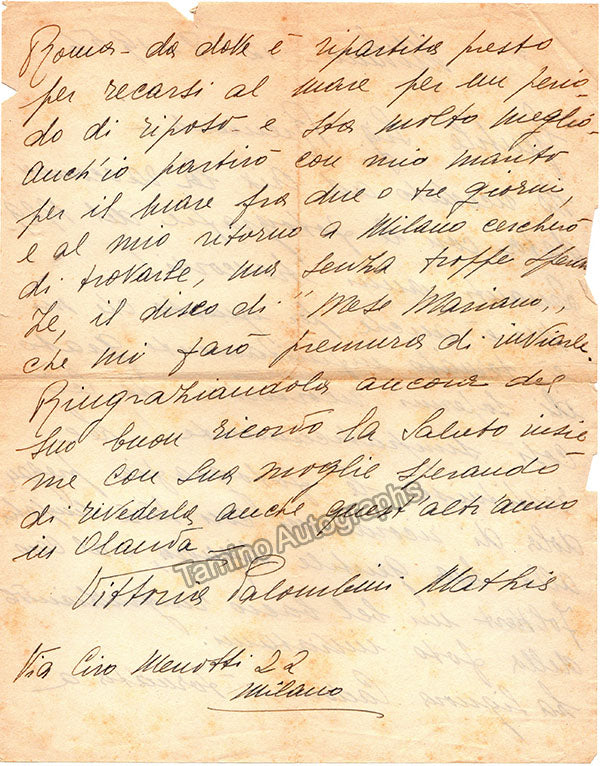 Roma - da dove è ripartita presto
per recarsi al mare per un perio-
do di riposo - e sta molto meglio.
Anch'io partirò con mio marito
per il mare fra due o tre giorni,
e al mio ritorno a Milano cercherò
di trovarle, ma senza troppe speran
ze, il disco di "Mese Mariano,,
che mi farò premura di inviarle.
Ringraziandola ancora del
suo buon ricordo la saluto insie
me con sua moglie sperando
di rivederla anche quest'altr'anno
in Olanda -
Tamino Autographs
Vittoria Palombini Mathis
Via Ciro Menotti 22
Milano